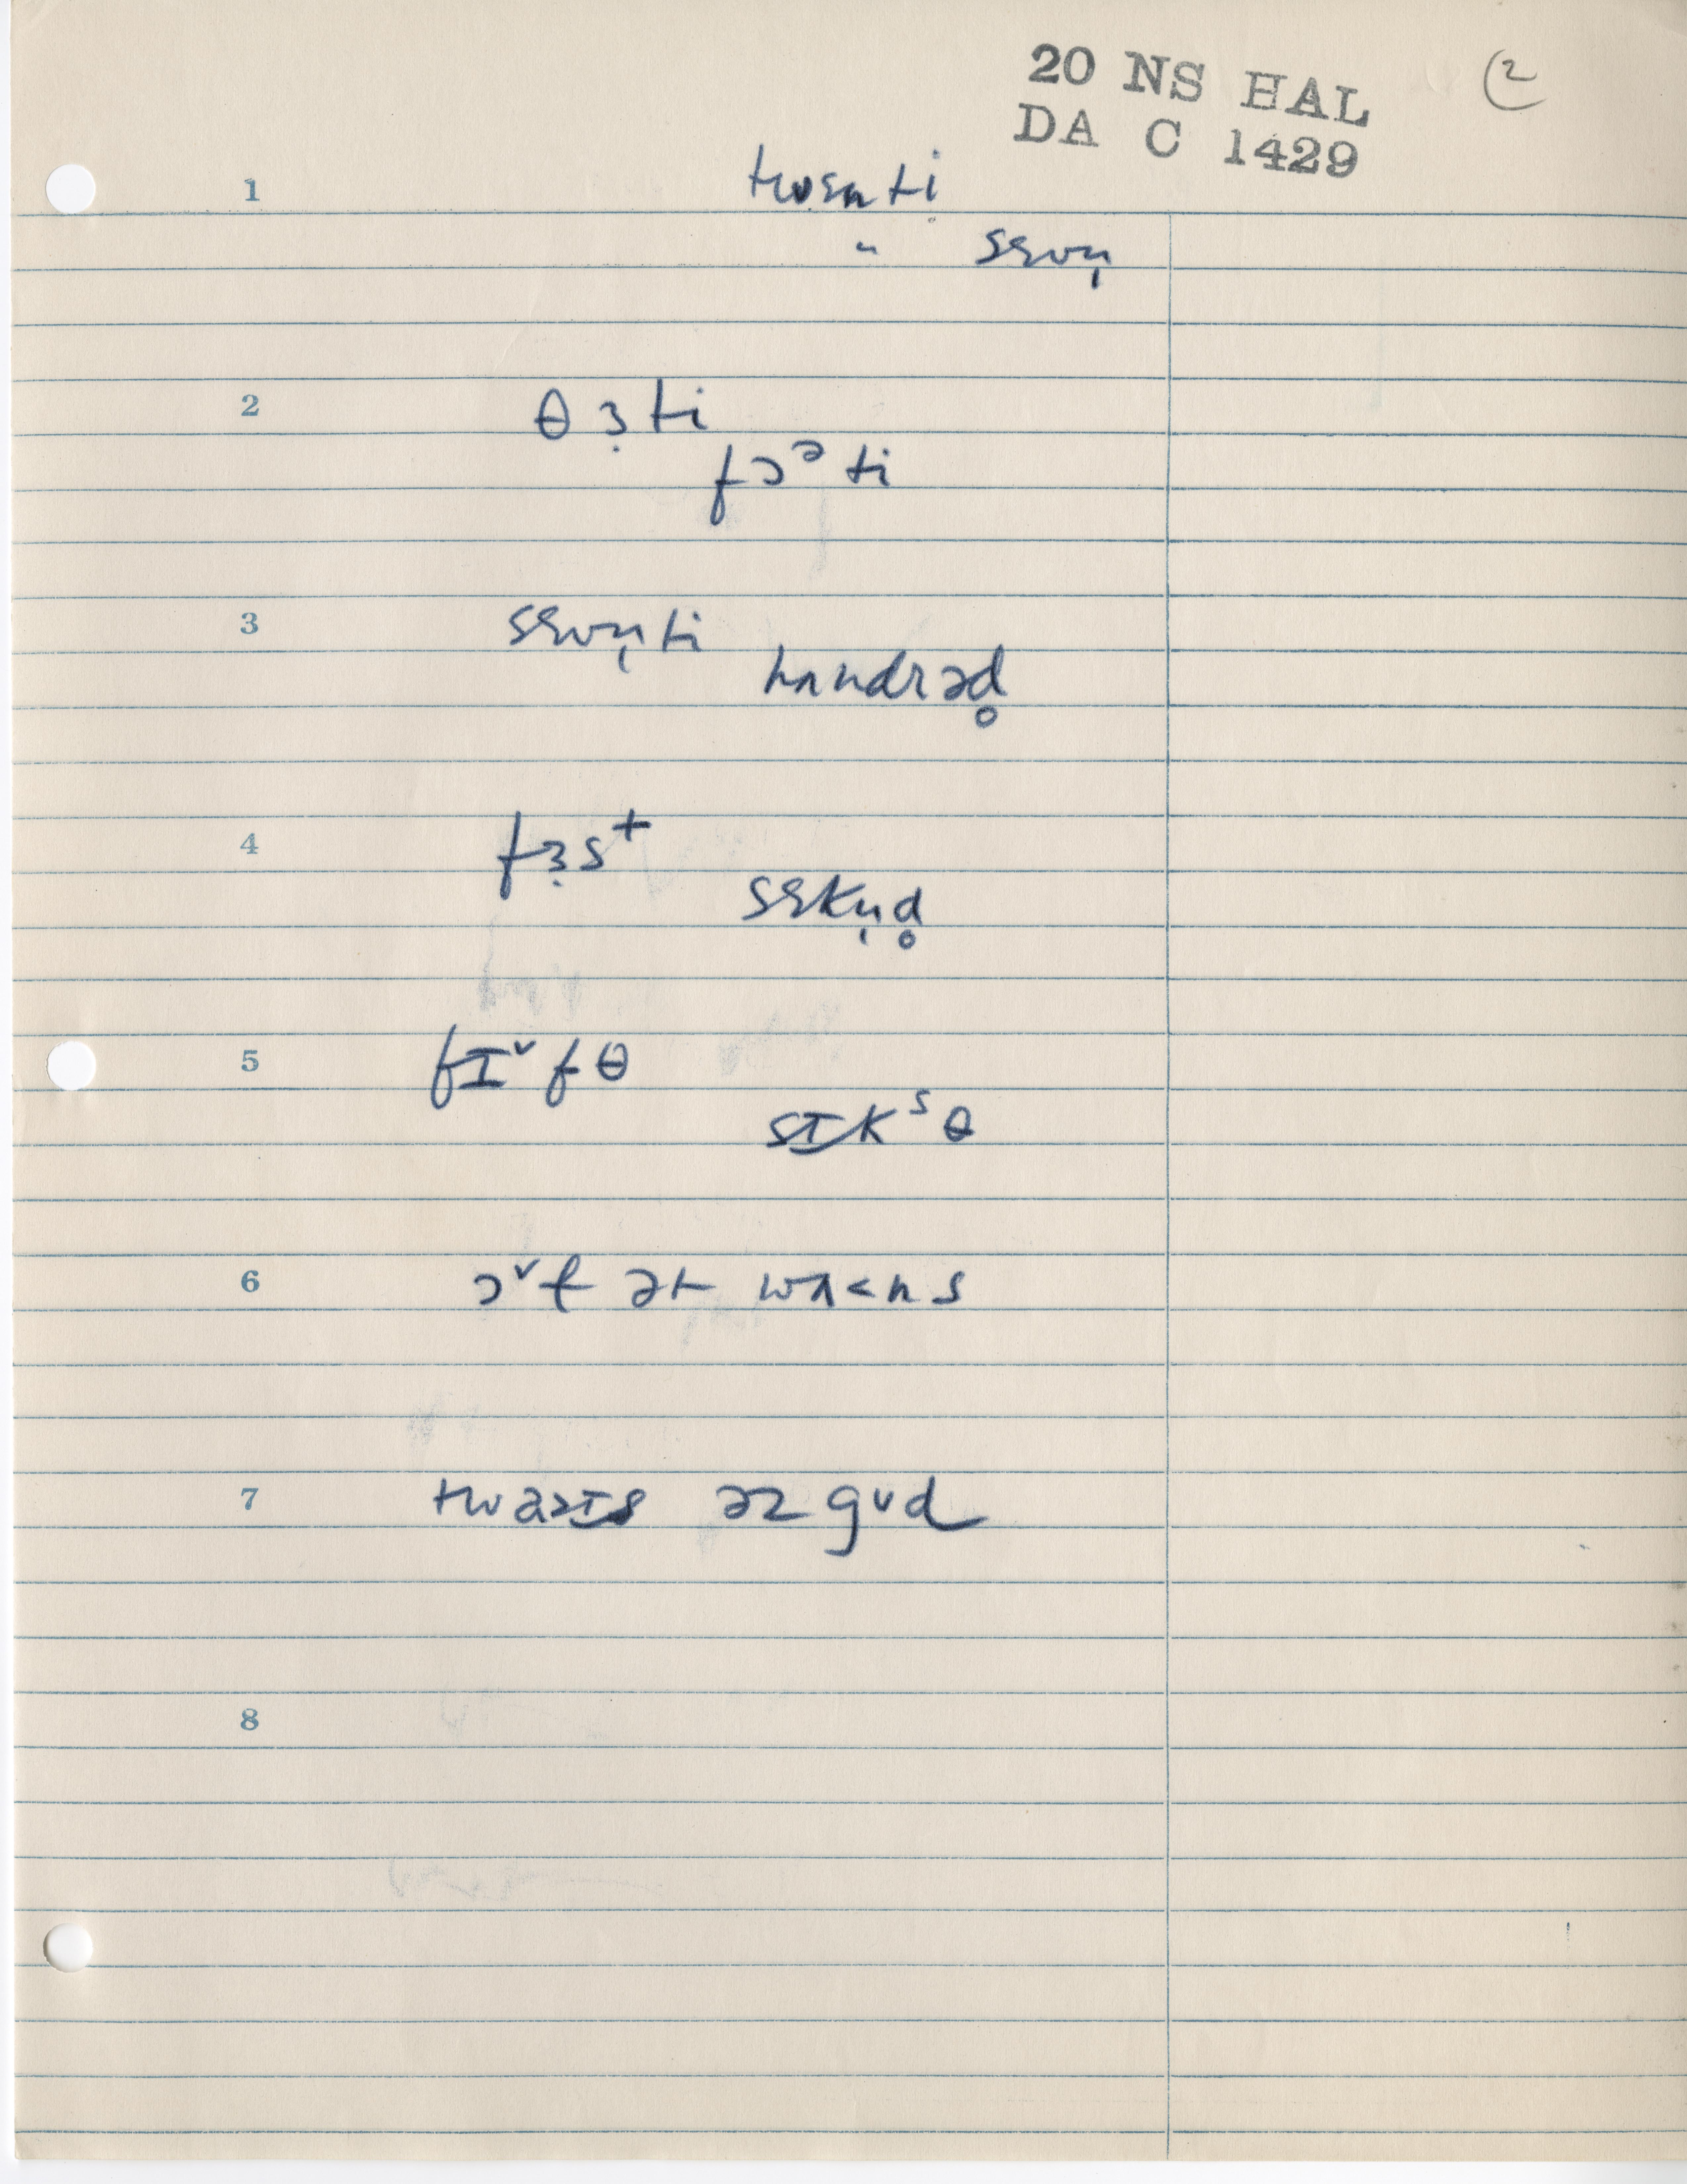 20 NS HAL
DA C 1429
2
1 twɛnti
" sɛvn̩
2 θɜ̣ti
fɔᵊti
3 sɛvn̩ti
hʌndrəd̥
4 fɜ̣st
sɛkn̩d̥
5 fɪˇfθ
sɪkˢθ
6 ɔˇt ət wʌ<ns
7 əz gʊd
8